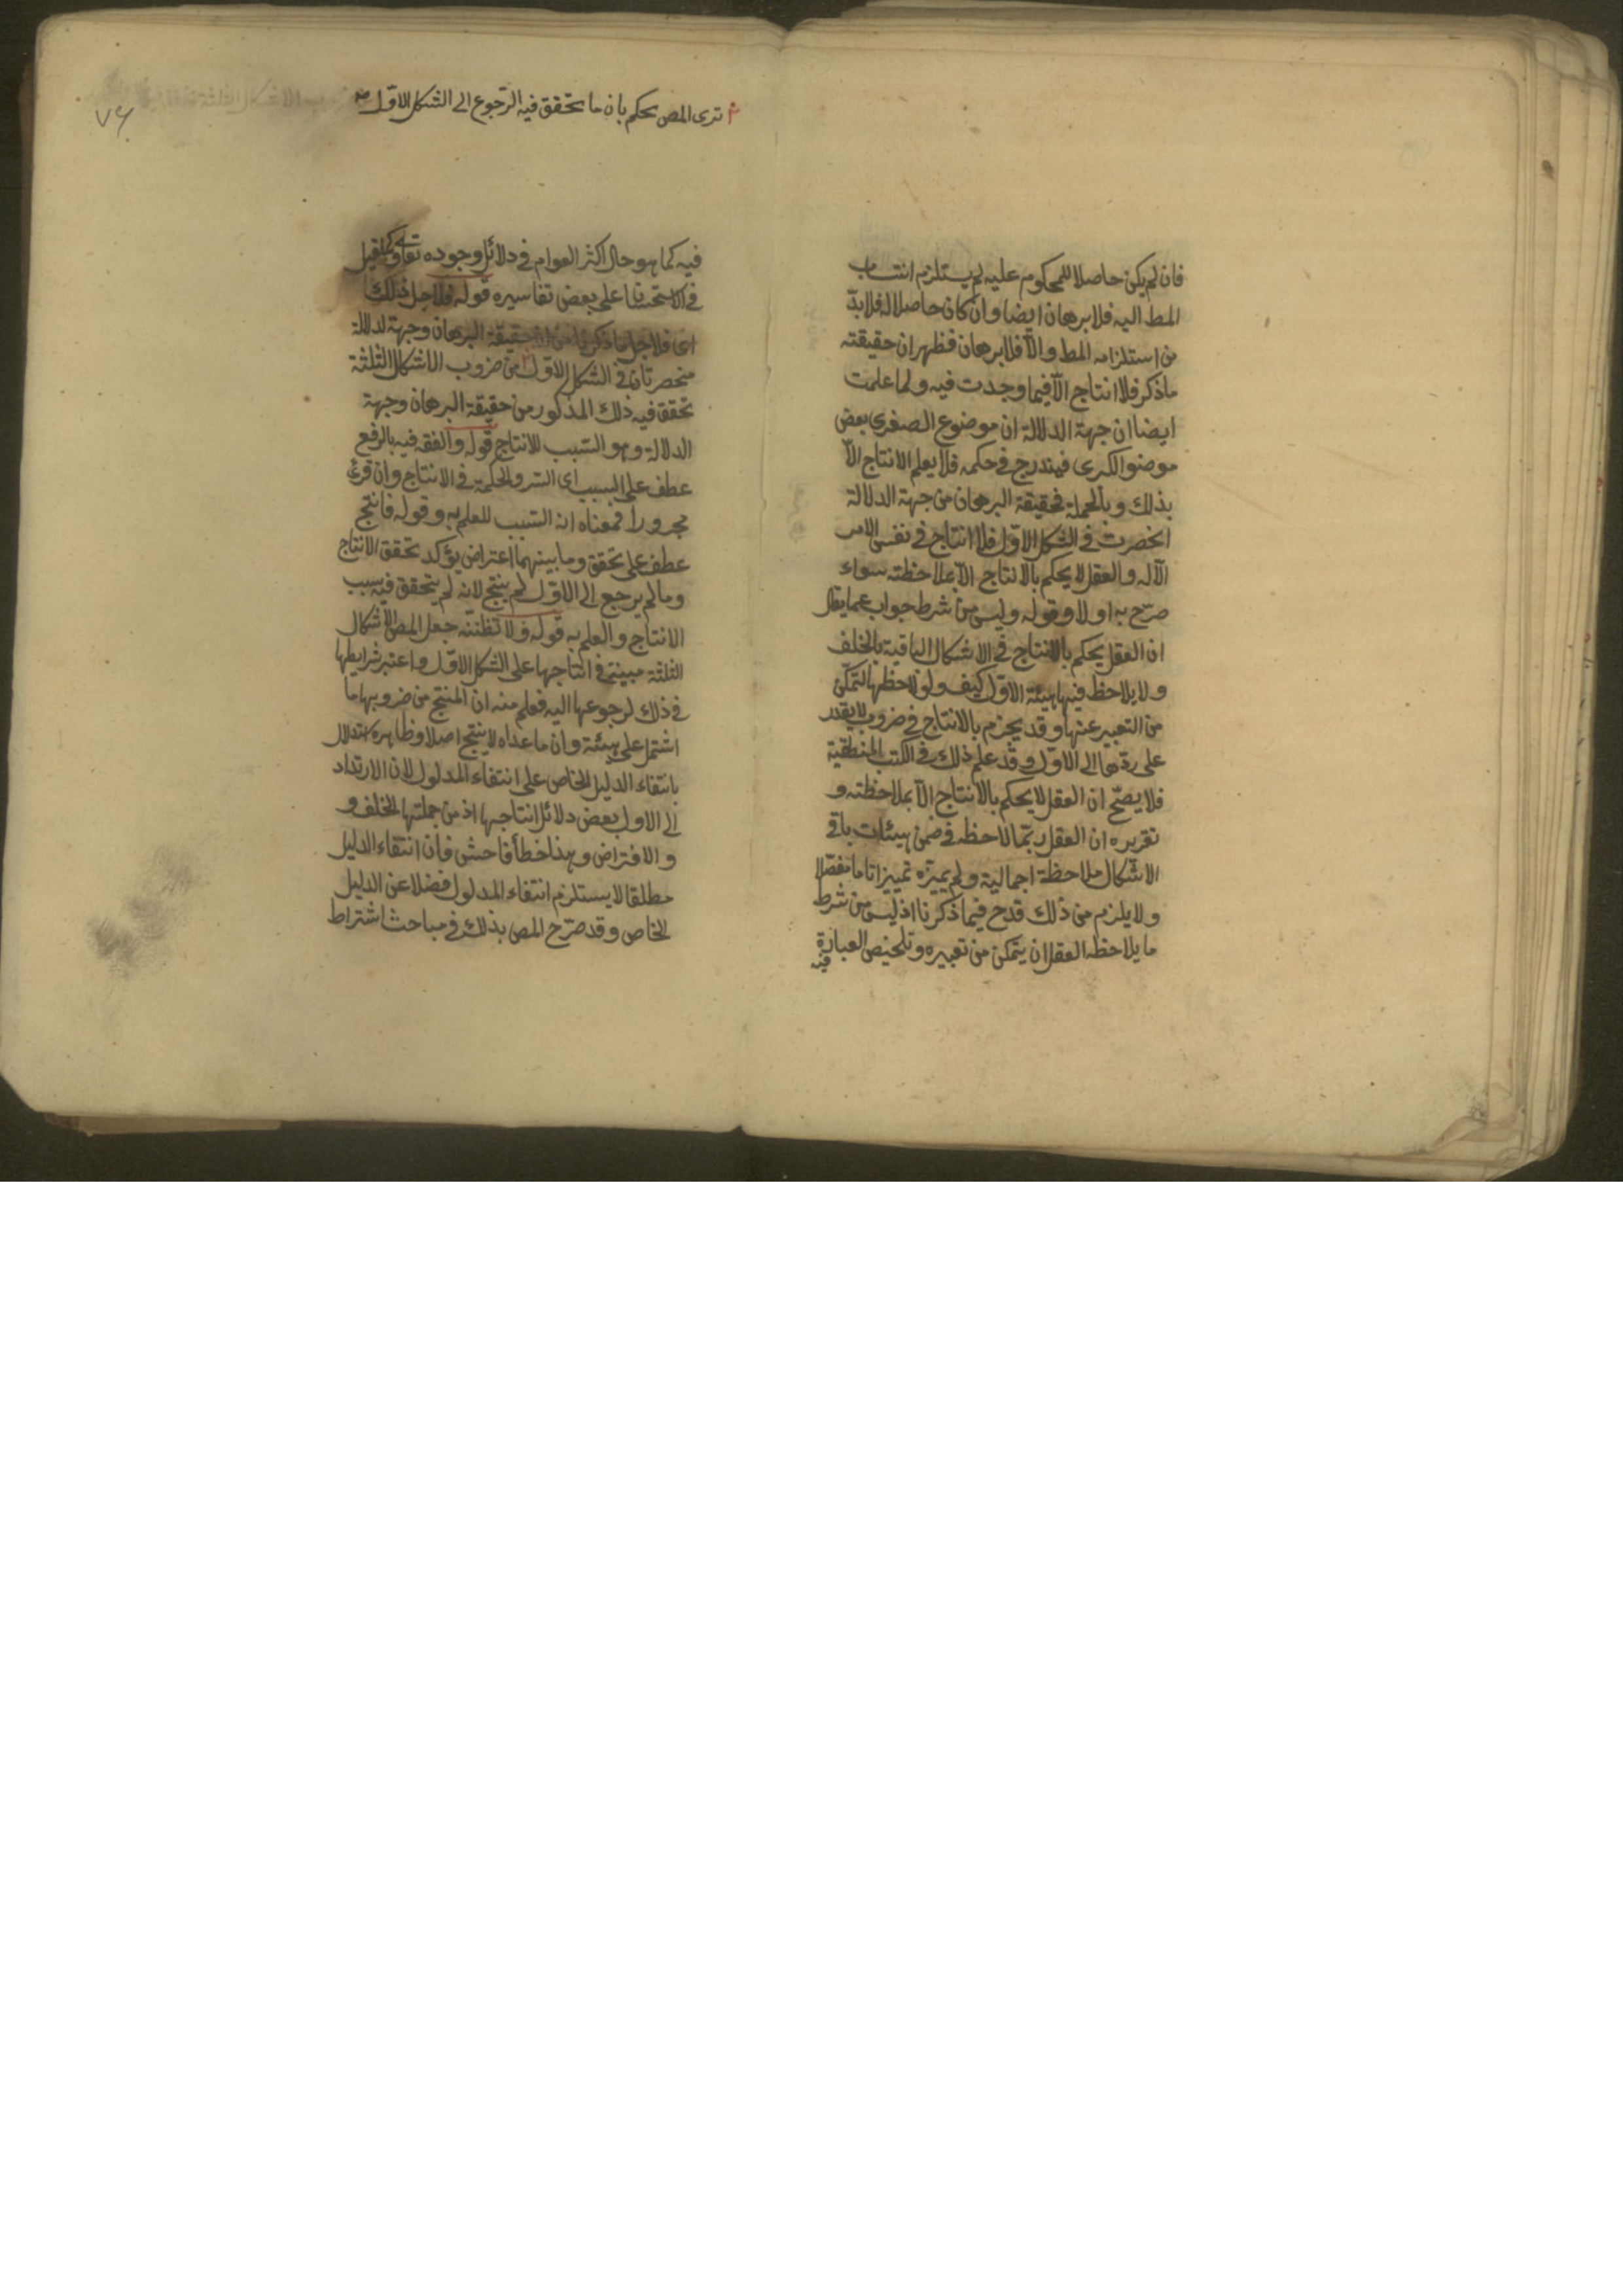 فان لم يكن حاصلا للمحكوم عليه لم يستلزم انتساب
المط اليه فلا برهان ايضا وان كان حاصلا له فلا بدّ
من استلزامه المط والّا فلا برهان فظهر ان حقيقته
ماذكر فلا انتاج الّا فيما وجدت فيه ولما علمت
ايضا ان جهة الدلالة ان موضوع الصغرى بعض
موضوع الكبرى فيندرج في حكمه فلا يعلم الانتاج الّا
بذلك وبالجملة فحقيقة البرهان من جهة الدلالة
انحصرت في الشكل الاوّل فلا انتاج في نفس الامر
الّا له والعقل لا يحكم بالانتاج الّا بملاحظته سواء
صرّح به اولا وقوله وليس من شرط جواب عما يقال
ان العقل يحكم بالانتاج في الاشكال الباقية بالخلف
ولا يلاحظ فيها هيئة الاوّل كيف ولو لاحظها لتمكّن
من التعبير عنها وقد يجزم بالانتاج في ضروب لا يقدر
على ردّها الى الاوّل وقد علم ذلك في الكتب المنطقية
فلا يصحّ ان العقل لا يحكم بالانتاج الّا بملاحظته و
تقريره ان العقل ربّما لاحظه في ضمن هيئات باقي
الاشكال ملاحظة اجمالية ولم يميّزه تمييزا تاما مفصّلا
ولا يلزم من ذلك قدح فيما ذكرنا اذ ليس من شرط
ما يلاحظه العقل ان يتمكن من تعبيره وتلخيص العبارة
فيه
٢ ترى المص يحكم بان ما تحقق فيه الرّجوع الى الشكل الاوّل صح
٧٦
فيه كما هو حال اكثر العوام في دلائل وجوده تعالى وكما قيل
في الاستحسان على بعض تفاسيره قوله فلاجل ذلك
اى فلاجل ما ذكرنا من ان حقيقة البرهان وجهة لدلالة
منحصرتان في الشكل الاوّل من ضروب الاشكال الثلثة
تحقق فيه ذلك المذكور من حقيقة البرهان وجهة
الدلالة وهو السّبب للانتاج قوله والفقه فيه بالرفع
عطف على السبب اى السر والحكمة في الانتاج وان قرئ
مجرورا فمعناه انه السّبب للعلم به وقوله فانتج
عطف على تحقق وما بينهما اعتراض يؤكد تحقق الانتاج
وما لم يرجع الى الاوّل لم ينتج لانه لم يتحقق فيه سبب
الانتاج والعلم به قوله ولا تظننّه جعل المص الاشكال
الثلثة مبينة في انتاجها على الشكل الاوّل واعتبر شرايطها
في ذلك لرجوعها اليه فعلم منه ان المنتج من ضروبها ما
اشتمل على هيئته وان ما عداه لا ينتج اصلا وظاهره استدلال
بانتفاء الدليل الخاص على انتفاء المدلول لان الارتداد
الى الاول بعض دلائل انتاجها اذ من جملتها الخلف و
والافتراض وهذا خطأ فاحش فان انتفاء الدليل
مطلقا لا يستلزم انتفاء المدلول فضلا عن الدليل
الخاص وقد صرّح المص بذلك في مباحث اشتراط